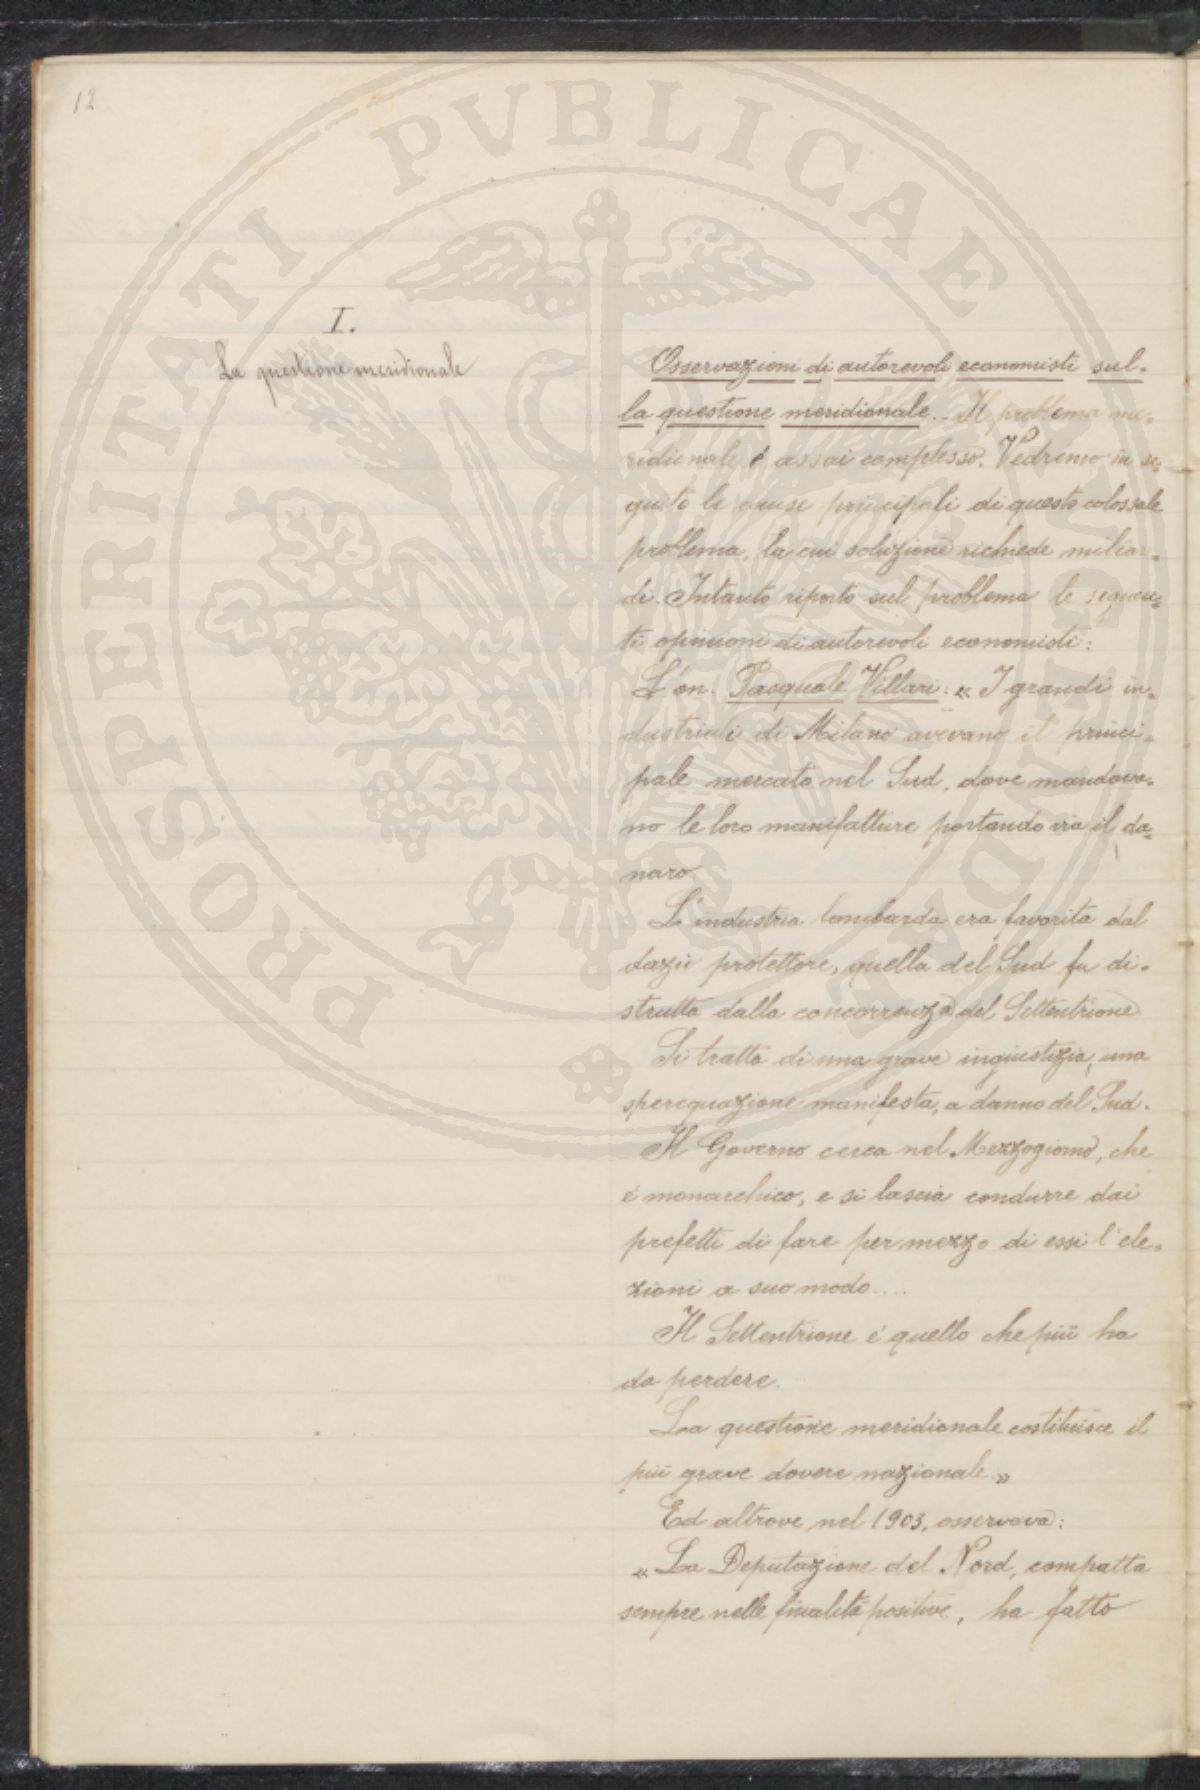 12
I.
La questione meridionale
Osservazioni di autorevoli economisti sul-
la questione meridionale.- Il problema me-
ridionale é assai complesso. Vedremo in se-
guito le cause principali di questo colossale
problema, la cui soluzione richiede miliar-
di. Intanto riporto sul problema le seguen-
ti opinioni di autorevoli economisti:
L'on. Pasquale Villari: « I grandi in-
dustriali di Milano avevano il princi-
pale mercato nel Sud, dove mandava-
no le loro manifatture portando via il da-
naro.
L'industria lombarda era favorita dal
dazio protettore, quella del Sud fu di-
strutta dalla concorrenza del Settentrione.
Si tratta di una grave ingiustizia, una
sperequazione manifesta, a danno del Sud.
Il Governo cerca nel Mezzogiorno, che
é monarchico, e si lascia condurre dai
prefetti di fare per mezzo di essi l'ele-
zioni a suo modo....
Il Settentrione é quello che più ha
da perdere.
La questione meridionale costituisce il
più grave dovere nazionale.»
Ed altrove nel 1903, osservava:
« La Deputazione del Nord, compatta
sempre nelle finalità positive, ha fatto
PROSPERITATI PVBLICAE VINDEX